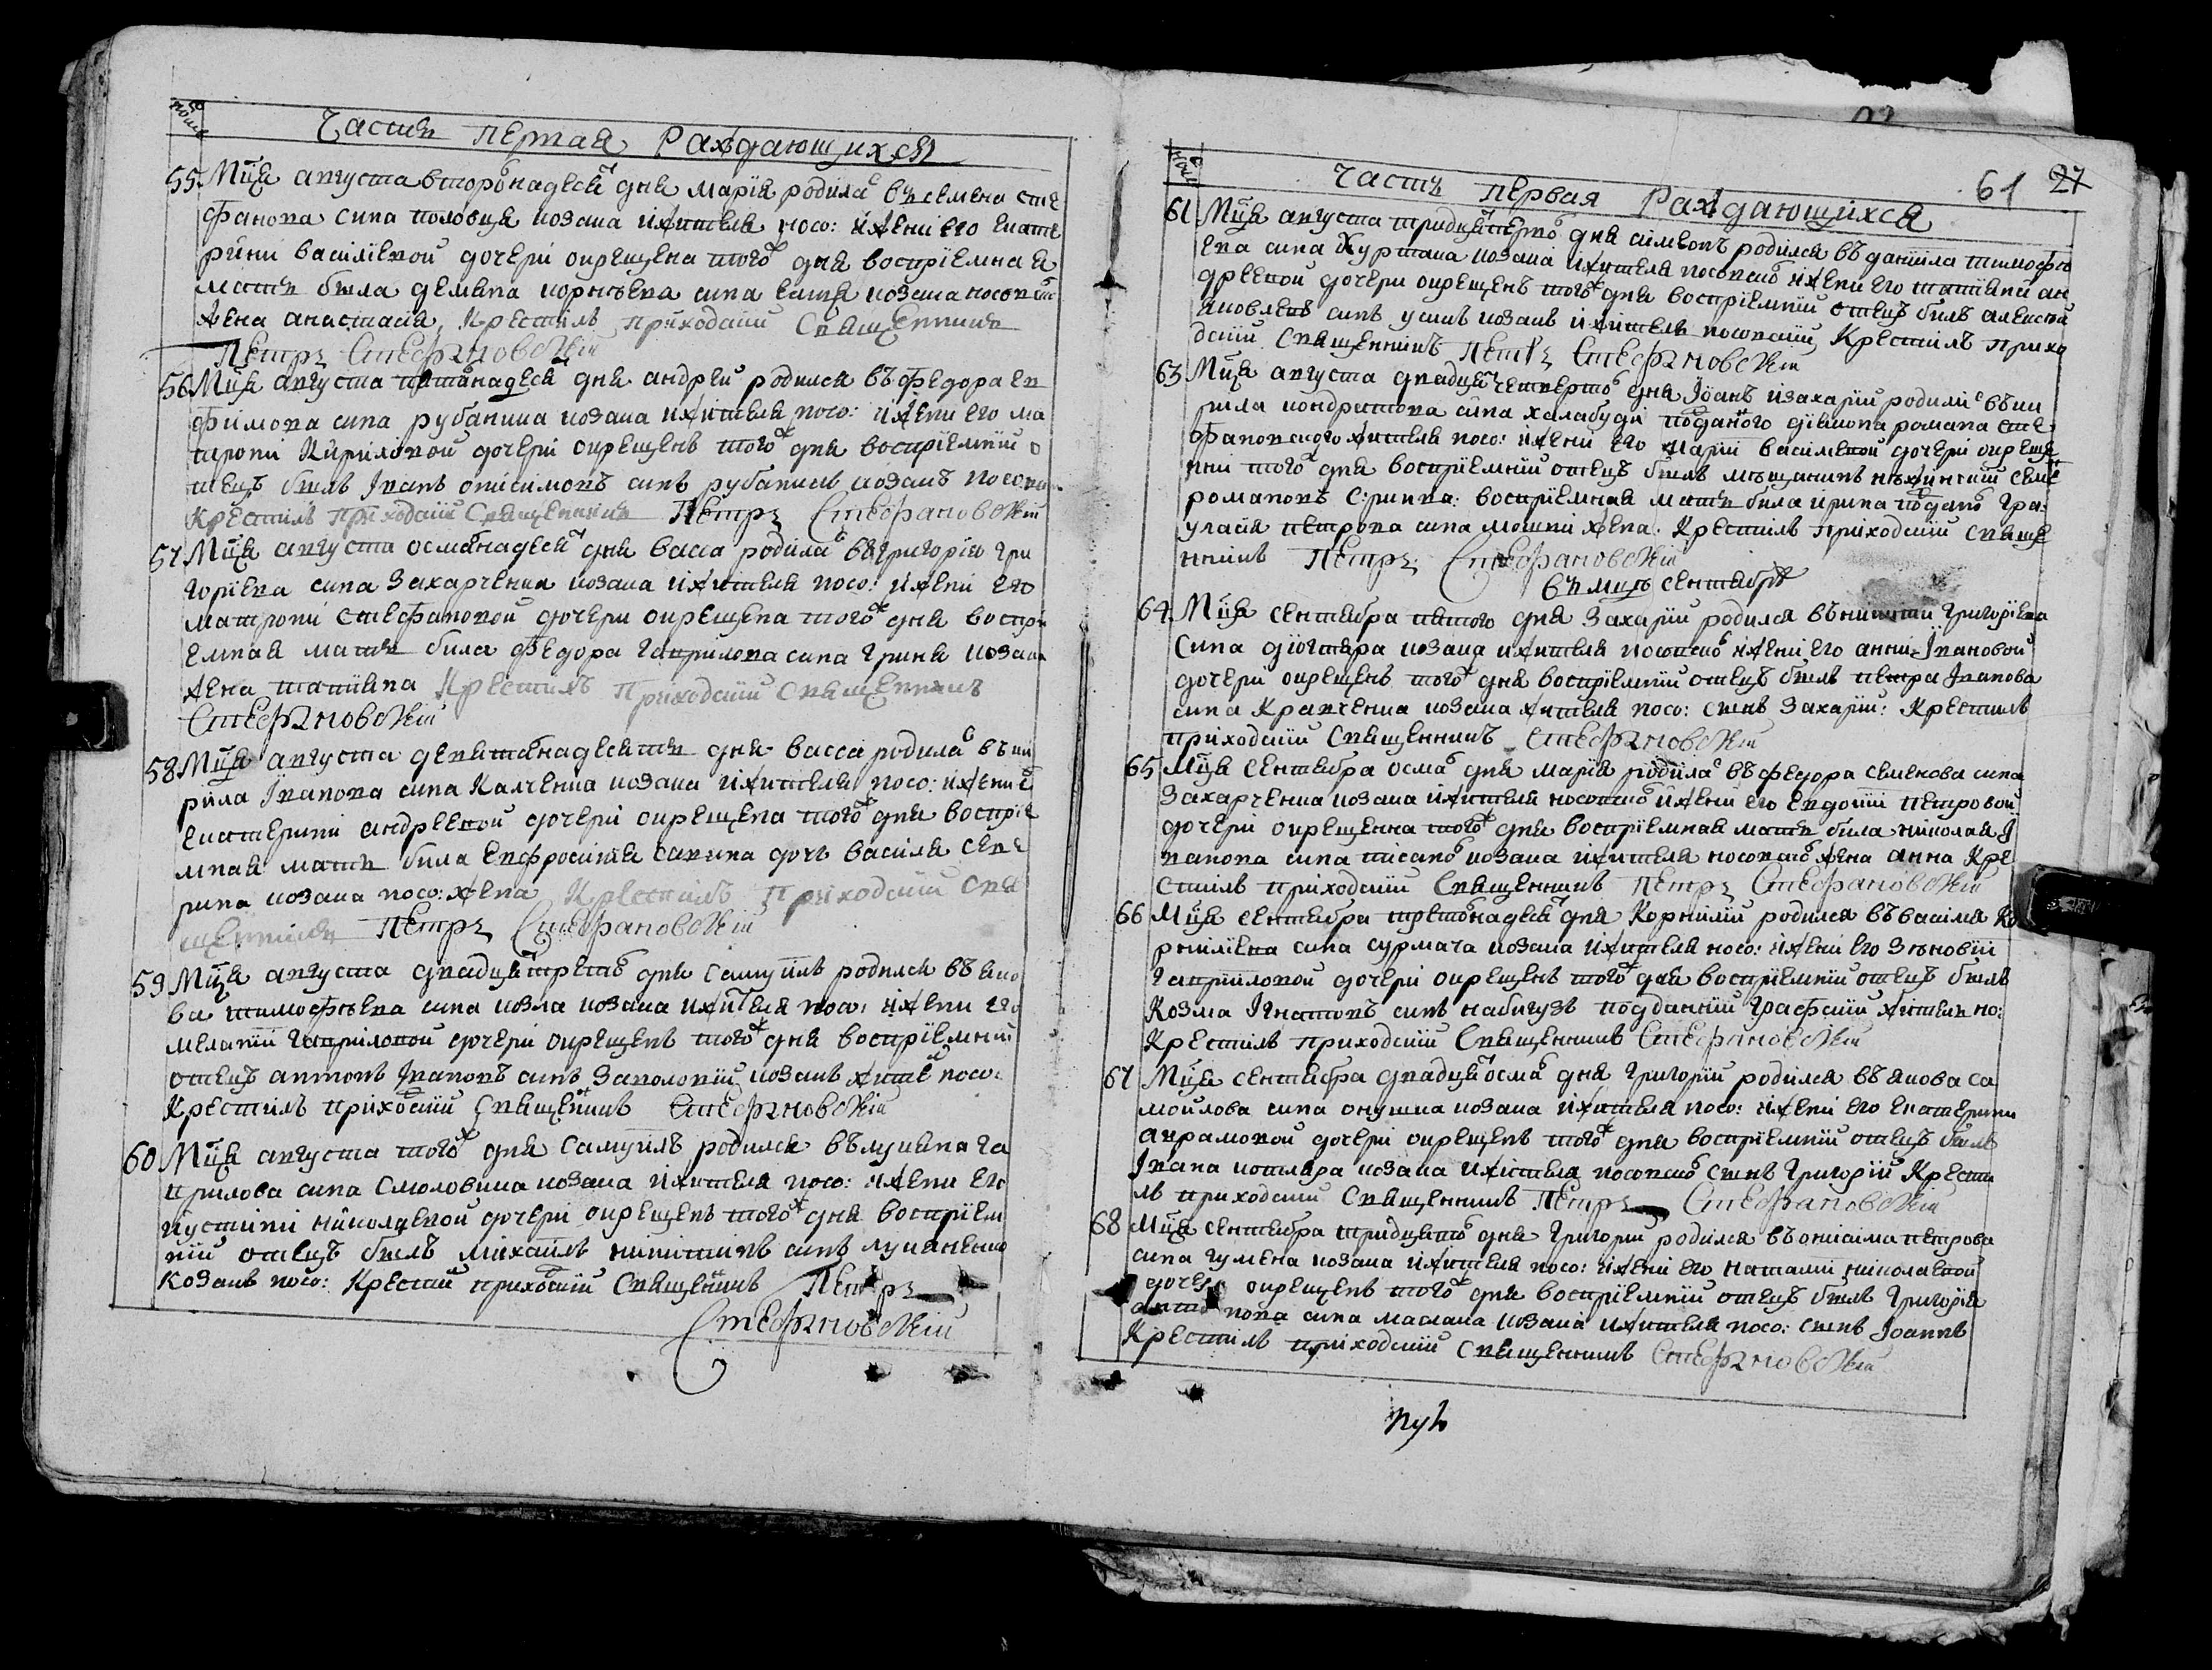 Часть первая Раждающихся
55. Мца августа второнадесят дня Мария родилас въ Семена Сте
фанова сина половця козака и жителя носо: и жени его Екате
рини Василіевой дочери окрещена того ж дня воспріемная
мать била Демяна сина козака носовск
жена Анастасія, Крестилъ приходскій Священникъ
Петръ Стефановскій
56 Мца августа пятнадесят дня Андрей родился въ Федора Ев
фимова сина рубаника козака и жителя носо: и жени его ма
трони Кириловой дочери окрещенъ того ж дня воспріемній о
тецъ билъ Іванъ Онисимовъ синъ рубаникъ козакъ носовск
Крестилъ приходскій Священникъ Петръ Стефановскій
57 Мца августа осмнадесят дня Васса родилас въ Григорія Гри
горіева сина Захарченка козака и жителя носо: и жени его
матрони Стефановой дочери окрещена того ж дня воспрі
емная мать била Федора Гаврилова сина Гриня козака
жена татіяна Крестилъ Приходскій Священникъ
Стефановскій
58 Мца августа девятнадесять дня Васса родилас въ Ки
рила Іванова сина Калченка козака и жителя носо: и жени е
Екатерини Андреевой дочери окрещена того ж дня воспріе
мная мать била Евфросинія Савина дочь Василя Севе
рина козака носо: жена Крестилъ Приходскій Свя
щенникъ Петръ Стефановскій
59 Мца августа двадцят третого дня Самуилъ родился въ Яко
ва тимофѣева сина козла козака и жителя носо: и жени его
меланіи Гавриловой дочери окрещенъ того ж дня воспріемній
отецъ Антонъ Івановъ синъ Заполскій козакъ жител носо:
Крестилъ приходскій Священникъ Стефановскій
60 Мца августа того ж дня Самуилъ родился въ Лукяна Га
врилова сина Смоловика козака и жителя носо: и жени его
иустини николаевой дочери окрещенъ того ж дня воспріем
ній отецъ билъ Михаилъ никитинъ синъ лукяненко
Козакъ носо: Крестил приходскій Священникъ Петръ
Стефановскій
61 27
Часть первая Раждающихся
61 Мца августа тридцят дня Сімеонъ родился въ Даніила тимофѣ
ева сина Журмана козака и жителя носовско и жени его татіяни ан
дреевой дочери окрещенъ того ж дня воспріемній отецъ билъ Алексѣй
яковлевъ синъ усикъ козакъ и житель носовскій Крестилъ прихо
дскій Священникъ Петръ Стефановскій
63 Мца августа двадцят четвертого дня Іоанъ и Захарій родилис въ Ки
рила кондратова сина халабуди поданого діакона романа сте
фановского жителя носо: и жени его Маріи Василевой дочери окреще
нни того ж дня воспріемній отецъ билъ мѣщанинъ нѣжинскій Семе
романовъ Скринка: воспріемная мать била ирина поданого Гра.
петрова сина мошни жена. Крестилъ приходскій Свяще
нникъ Петръ Стефановскій
въ мцѣ сентябрѣ
64 Мца сентября пятого дня Захарій родился въ никити Григоріева
Сина діогтяра козака и жителя носовско и жени его анни Івановой
дочери окрещенъ того ж дня воспріемній отецъ билъ петра Іванова
сина Кравченка козака жителя носо: синъ Захарій: Крестилъ
приходскій Священникъ Стефановскій
65 Мца сентября осмо дня Марія родилас въ Федора Семенова сина
Захарченка козака и жителя носовско и жени его Евдокіи петровой
дочери окрещенна того ж дня воспріемная мать била николая І
ванова сина писаро козака и жителя носовско жена анна Кре
стилъ приходскій Священникъ Петръ Стефановскій
66 Мца сентября третонадесят дня Корнилій родился въ Василя Ко
рниліева сина сурмача козака и жителя носо: и жени его Зѣновіи
Гавриловой дочери окрещенъ того ж дня воспріемній отецъ билъ
Козма Ігнатовъ синъ набигузъ подданній Графскій житель но:
Крестилъ приходскій Священникъ Стефановскій
67 Мца сентября двадцят осмо дня Григорій родился въ якова са
мойлова сина онушка козака и жителя носо: и жени его Екатерини
аврамовой дочери окрещенъ того ж дня воспріемній отецъ билъ
Івана котляра козака и жителя носовско синъ Григорій Крести
лъ приходскій Священникъ Петръ Стефановскій
68 Мца сентября тридцято дня Григорій родился въ онисима петрова
сина гумена козака и жителя носо: и жени его наталіи николаевой
дочери окрещенъ того ж дня воспріемній отецъ билъ Григорія
сина маслака козака и жителя носо: синъ Іоаннъ
Крестилъ приходскій Священникъ Стефановскій